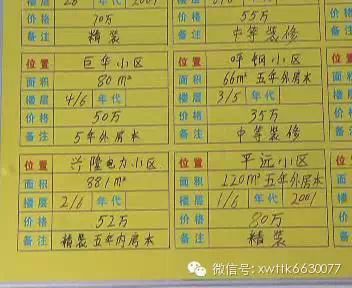 价格 70万 价格 55万
备注 精装 备注 中等装修
位置 巨华小区 位置 呼钢小区
面积 80m² 面积 66m² 五年外房本
楼层 4/6 年代 楼层 3/5 年代
价格 50万 价格 35万
备注 5年外房本 备注 中等装修
位置 兴隆电力小区 位置 平远小区
面积 88.1m² 面积 120m² 五年外房本
楼层 2/6 年代 楼层 1/6 年代 2001
价格 52万 价格 80万
备注 精装五年内房本 备注 精装
微信号: xwttk6630077